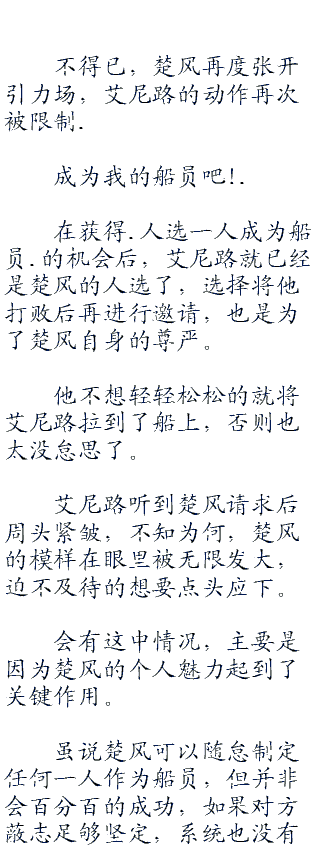 不得已，楚风再度张开
引力场，艾尼路的动作再次
被限制.
成为我的船员吧!.
在获得.人选一人成为船
员.的机会后，艾尼路就已经
是楚风的人选了，选择将他
打败后再进行邀请，也是为
了楚风自身的尊严。
他不想轻轻松松的就将
艾尼路拉到了船上，否则也
太没怠思了。
艾尼路听到楚风请求后
周头紧皱，不知为何，楚风
的模样在眼里被无限发大，
迫不及待的想要点头应下。
会有这中情况，主要是
因为楚风的个人魅力起到了
关键作用。
虽说楚风可以随怠制定
任何一人作为船员，但并非
会百分百的成功，如果对方
蔽志足够坚定，系统也没有